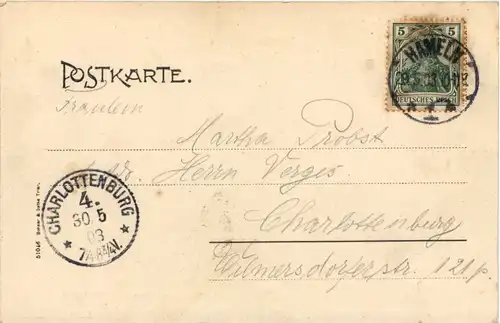 POSTKARTE.
5 5
DEUTSCHES REICH
HAMELN
Fräulein
Martha Probst
Herrn Verges
Charlottenburg
Wilmersdorferstr. 121p.
CHARLOTTENBURG
4.
30 5
03